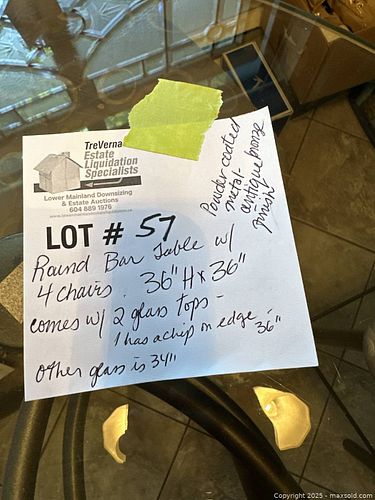 TreVerna
Estate
Liquidation
Specialists
Lower Mainland Downsizing
& Estate Auctions
604 889 1976
LOT # 57
Round Bar Table w/
4 Chairs. 36" H x 36"
comes w/ 2 glass tops -
1 has a chip on edge - 36"
other glass is 34"
Powder coated
metal-
antique bronze
finish
Copyright 2025 - maxsold.com